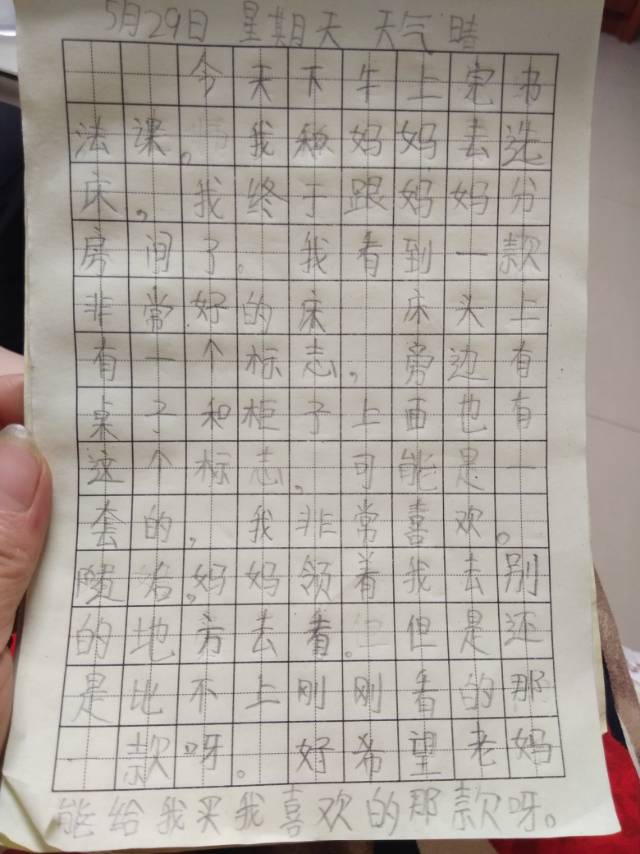 5月29日 星期天 天气晴
今天下午上完书
法课。我和妈妈去选
床，我终于跟妈妈分
房间了。我看到一款
非常好的床 床头上
有一个标志，旁边有
桌子和柜子上面也有
这个标志，可能是一
套的，我非常喜欢。
随后，妈妈领着我去别
的地方去看。但是还
是比不上刚刚看的那
一款呀。好希望老妈
能给我买我喜欢的那款呀。